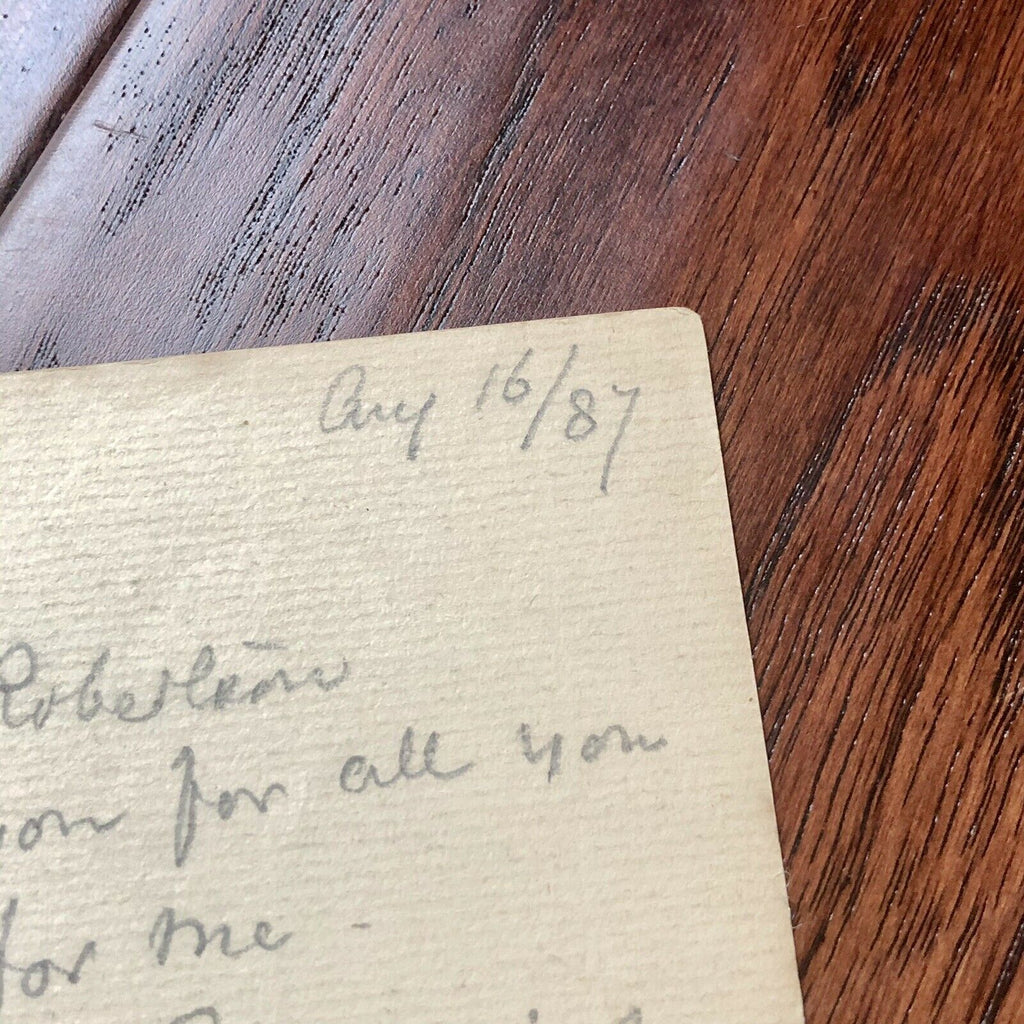 Aug 16/87
Robertson
you for all you
for me -